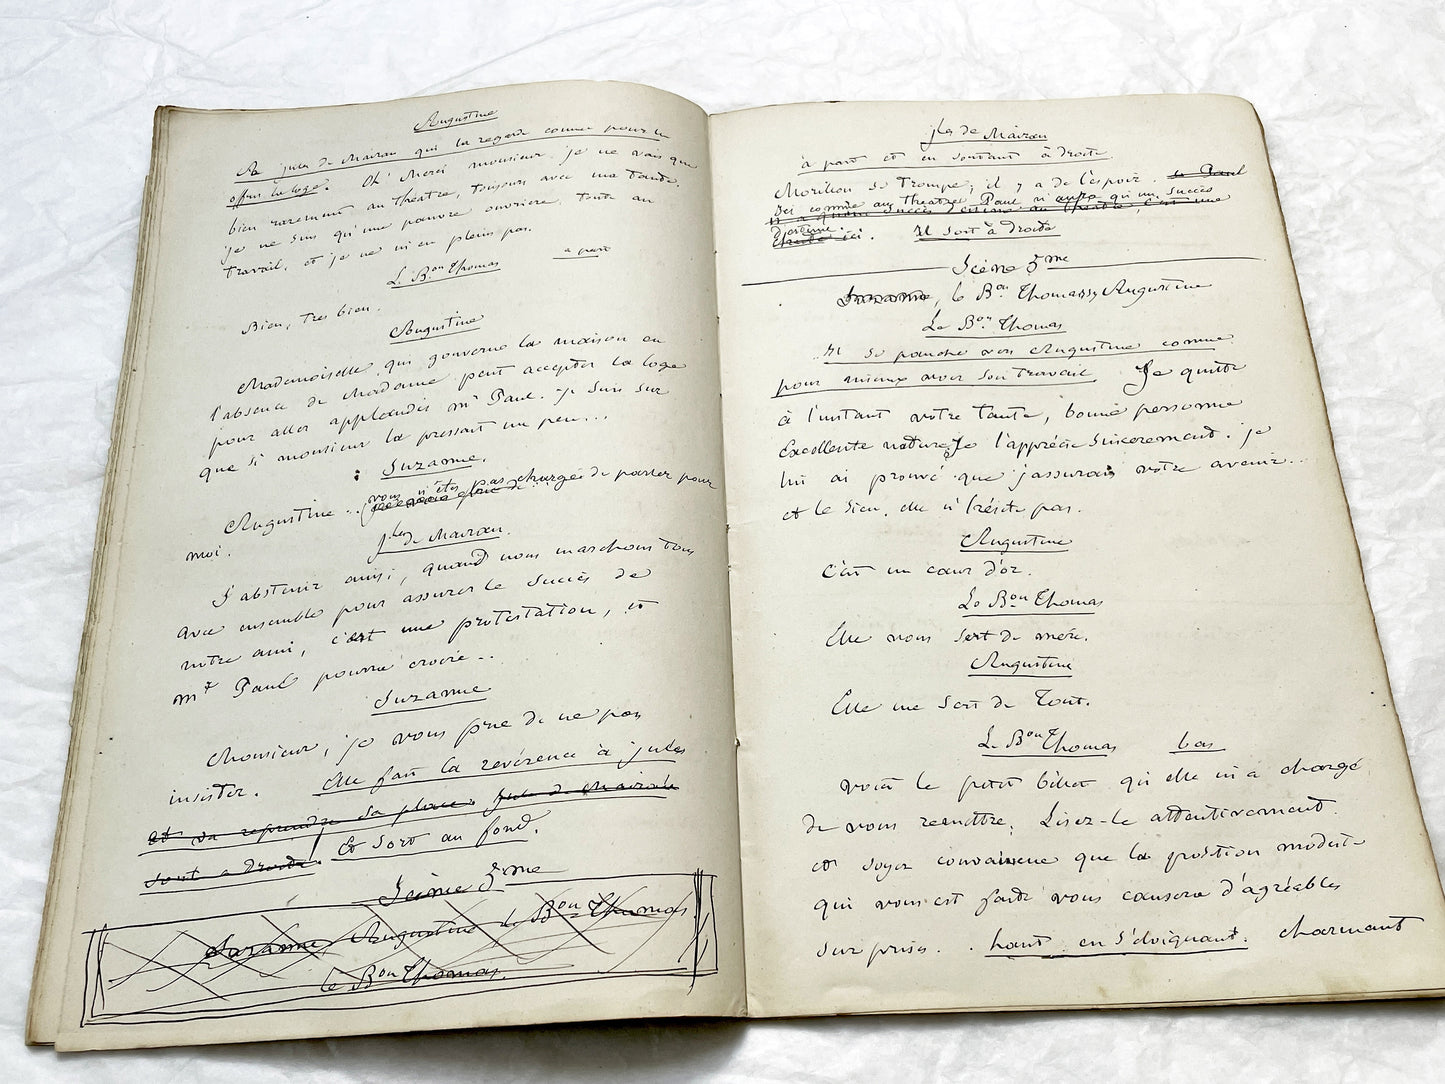 Augustine
A Jules de Mairan qui la regarde comme pour lui
offrir la loge. Oh! Merci monsieur, je ne vais que
bien rarement au théâtre, toujours avec ma tante.
je ne suis qu'une pauvre ouvrière, toute au
travail, et je ne m'en plains pas.
Le Bon Thomas à part
Bien, très bien.
Augustine
Mademoiselle, qui gouverne la maison en
l'absence de Madame peut accepter la loge
pour aller applaudir Mr Paul. je suis sur
que si monsieur la pressait un peu...
Suzanne.
Augustine... vous n'êtes pas chargée de parler pour
moi.
Jles de Mairan.
S'abstenir ainsi, quand nous marchons tous
avec ensemble pour assurer le succès de
notre ami, c'est une protestation, et
Mr Paul pourra croire...
Suzanne
Monsieur, je vous prie de ne pas
insister. Elle fait la révérence à Jules
et va reprendre sa place. Jules de Mairan
sort à droite. Et sort au fond.
Scène 5me
Suzanne Augustine le Bon Thomas.
le Bon Thomas.
Jles de Mairan
à part et en sortant à droite.
Morillon se trompe, il y a de l'espoir. Paul
Ici comme au théâtre Paul n'aura qu'un succès
d'estime.
ici. Il sort à droite
Scène 5me
Suzanne, le Bon Thomas, Augustine
Le Bon Thomas
Il se penche vers Augustine comme
pour mieux voir son travail. Je quitte
à l'instant votre tante, bonne personne
Excellente nature, Je l'apprécie sincèrement. je
lui ai prouvé que j'assurais votre avenir...
et le sien. elle n'hésite pas.
Augustine
C'est un cœur d'or.
Le Bon Thomas
Elle vous sert de mère.
Augustine
Elle me sert de tout.
Le Bon Thomas bas
Voici le petit billet qu'elle m'a chargé
de vous remettre. Lisez-le attentivement
et soyez convaincue que la position modeste
qui vous est faite vous causera d'agréables
surprises. haut en s'éloignant. charmant